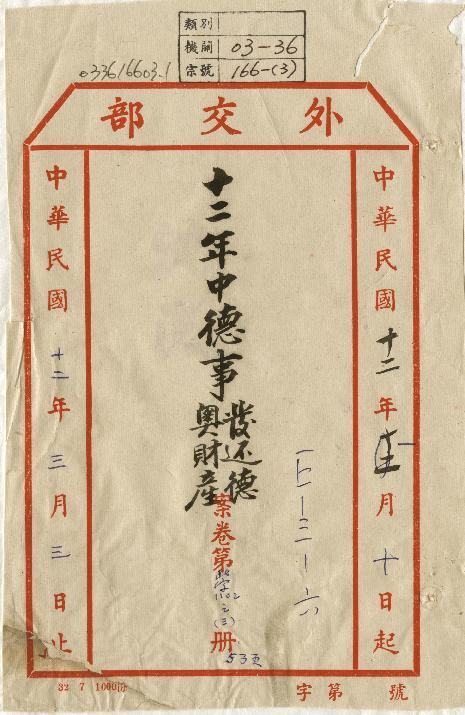 類別
機關 03-36
宗號 166-(3)
033616603.1
外交部
中華民國十二年 月十日起
十二年中德事
發还德
奧財產
案卷第 1102之(3)册
53页
中華民國十二年三月三日止
字第 號
32 7 1000份